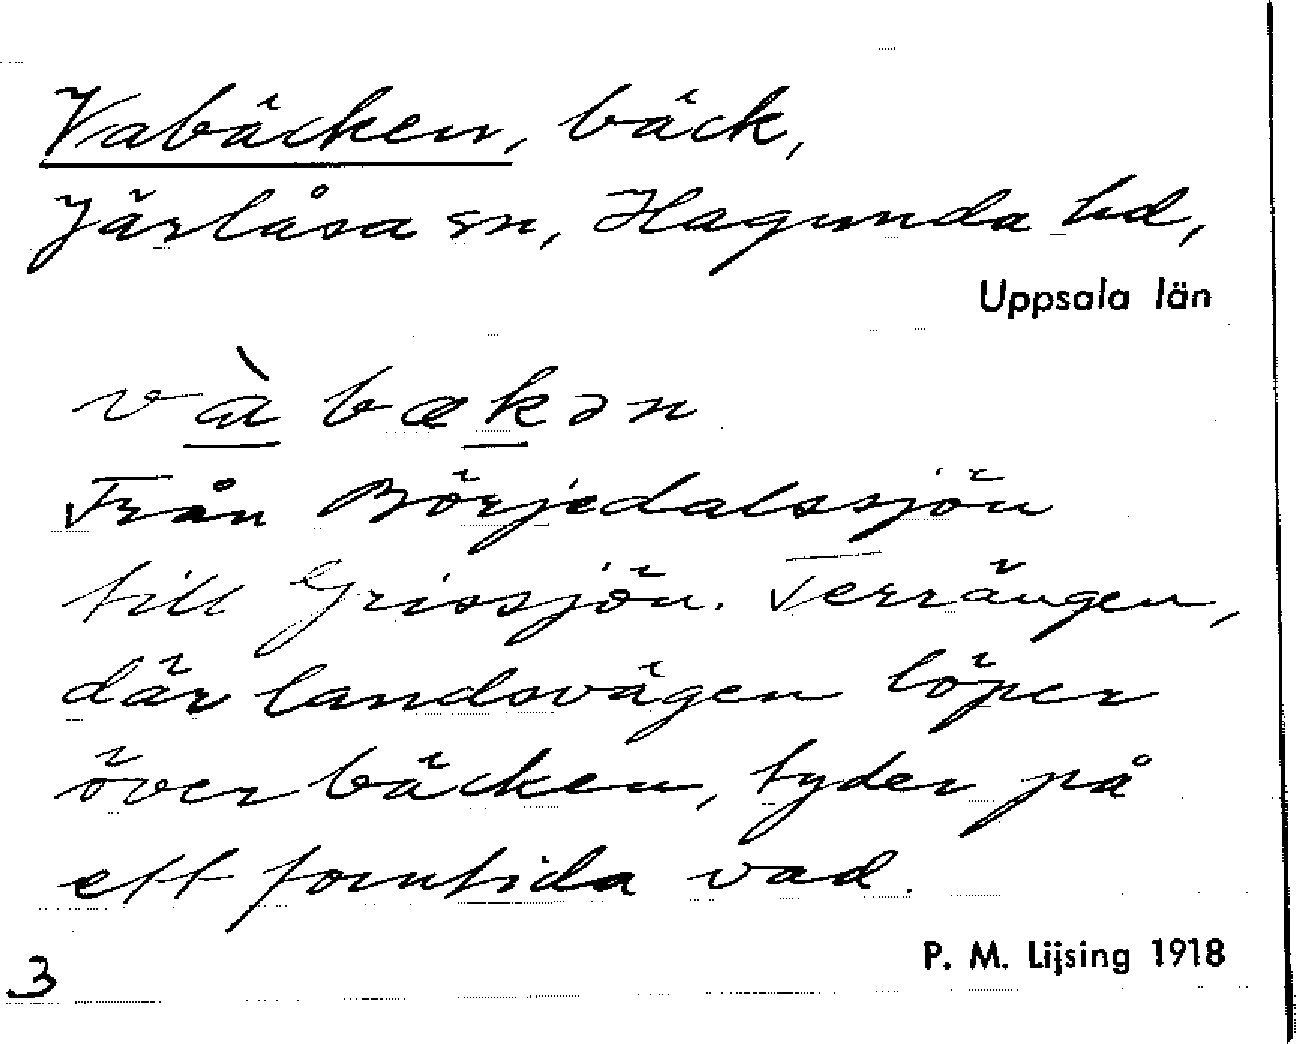 Vabäcken, bäck,
Järlåsa sn, Hagunda hd,
Uppsala län
và bækən
Från Börjedalssjön
till Grissjön. Terrängen,
där landsvägen löper
över bäcken, tyder på
ett forntida vad.
P. M. Lijsing 1918
3